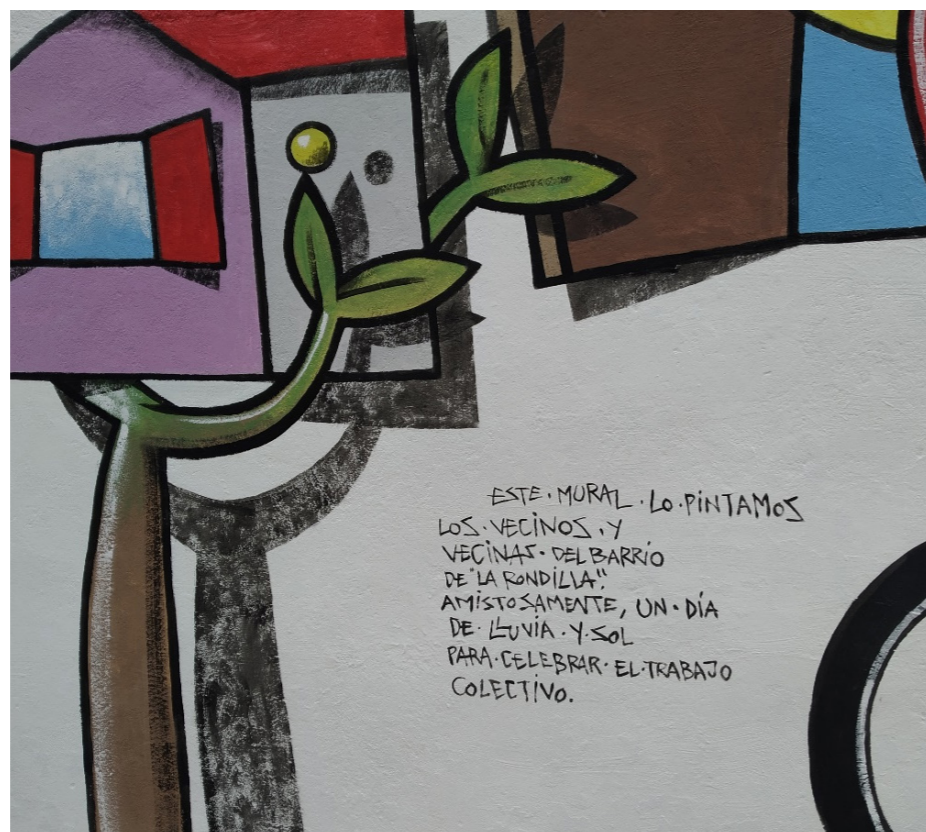 ESTE · MURAL · LO · PiNTAMOS
LOS · VECiNOS · Y
VECiNAS · DEL BARRiO
DE "LA RONDiLLA".
AMiSTOSAMENTE, UN · DÍA
DE · LLUViA · Y · SOL
PARA · CELEBRAR · EL · TRABAJO
COLECTiVO.